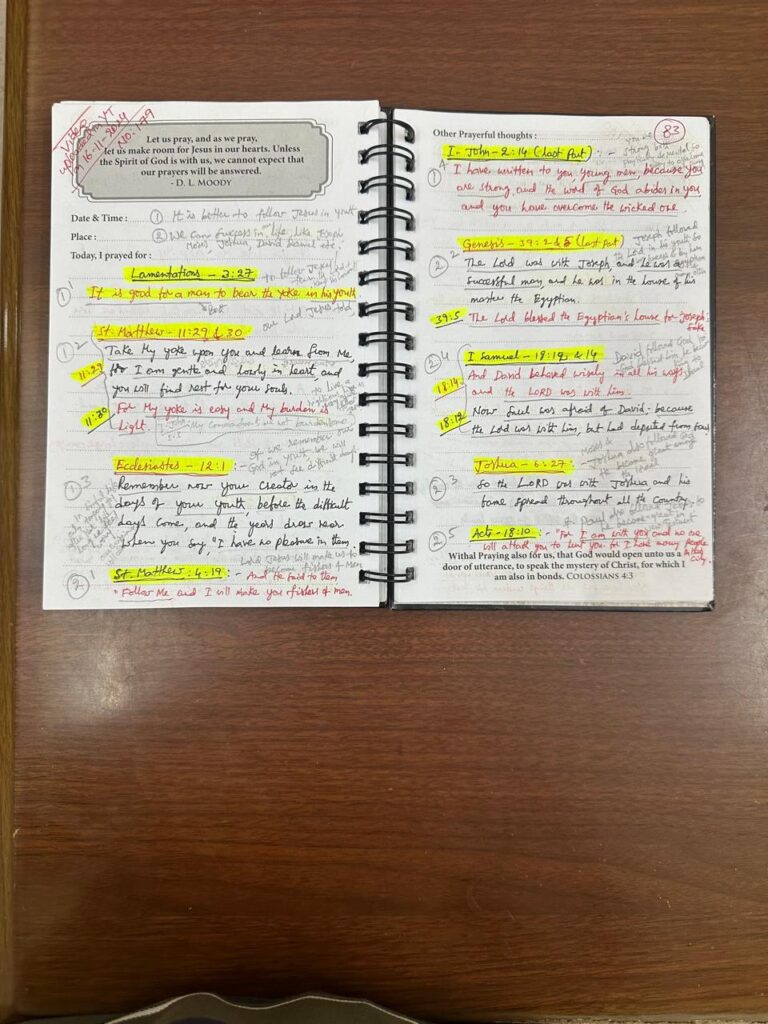 VBSP
uploaded in YT
16-11-2024
NO: 179
Let us pray, and as we pray,
let us make room for Jesus in our hearts. Unless
the Spirit of God is with us, we cannot expect that
our prayers will be answered.
- D. L. MOODY
Date & Time : ① It is better to follow Jesus in youth
Place : ② We can success in life, like Joseph
Moses, Joshua, David Daniel etc.
Today, I prayed for :
Lamentations - 3:27
①1 It is good for a man to bear the yoke in his youth
our Lord Jesus told
St. Matthew - 11:29 & 30
①2 Take My yoke upon you and learn from Me,
11:29 I am gentle and lowly in heart, and
you will find rest for your souls.
11:30 For My yoke is easy and My burden is
light.
I John My Commandments are not burdensome
5:3
Ecclesiastes - 12:1 :- If we remember
God in youth we will
not see difficult days
①3 Remember now your Creator in the
days of your youth, before the difficult
days come, and the years draw near
when you say, "I have no pleasure in them
Lord Jesus will make us to
become fishers of Men
②1 St. Matthew : 4:19 :- And He said to them,
"Follow Me and I will make you fishers of men.
83
Other Prayerful thoughts :
I - John - 2:14 (last part) :-
①4 I have written to you, young men, because you
are strong, and the word of God abides in you
and you have overcome the wicked one.
Genesis - 39:2 & 5 (last part) Joseph followed
the Lord in his youth so
②2 The Lord was with Joseph, and he was a
successful man, and he was in the house of his
master the Egyptian.
39:5 The Lord blessed the Egyptian's house for Joseph's
sake
②4 I Samuel - 18:12 & 14 David followed
18:14 And David behaved wisely in all his ways
and the LORD was with him.
18:12 Now Saul was afraid of David. because
the Lord was with him, but had departed from Saul
Moses &
Joshua - 6:27 :- Joshua also followed God
②3 So the LORD was with Joshua and his
fame spread throughout all the country
②5 Acts - 18:10 :- "For I am with you and no one
will attack you to hurt you for I have many people
in this city.
Withal Praying also for us, that God would open unto us a
door of utterance, to speak the mystery of Christ, for which I
am also in bonds. COLOSSIANS 4:3